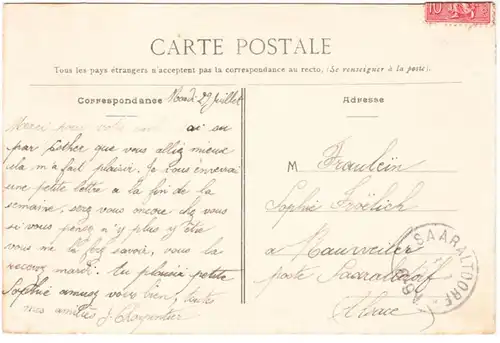 10
CARTE POSTALE
Tous les pays étrangers n'acceptent pas la correspondance au recto, (Se renseigner à la poste).
Correspondance Mardi 29 Juillet
Merci pour votre ai su
par Esther que vous alliez mieux
cela m'a fait plaisir. Je vous enverrai
une petite lettre a la fin de la
semaine, serez vous encore chez vous
si vous pensez n'y plus y être
vous me la ferez savoir, vous la
recevrez mardi. plaisir petite
Sophie amusez vous bien, toutes
mes amitiés J. Charpentier
Adresse
M Fraulein
Sophie Froëlich
a Hauweiler
poste Saaraltdorf
Alsace
SAARALTDORF